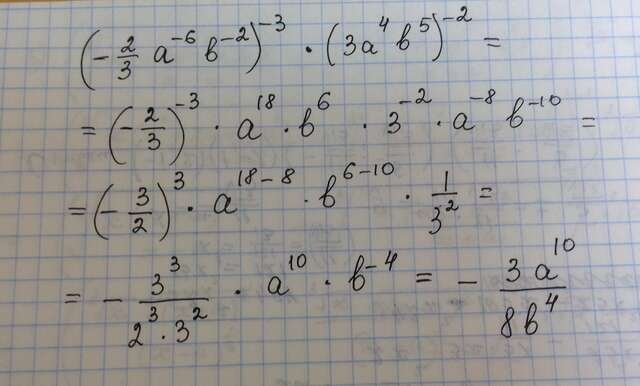 (-2/3 a⁻⁶ b⁻²)⁻³ · (3a⁴ b⁵)⁻² =
= (-2/3)⁻³ · a¹⁸ · b⁶ · 3⁻² · a⁻⁸ b⁻¹⁰ =
= (-3/2)³ · a¹⁸⁻⁸ · b⁶⁻¹⁰ · 1/3² =
= - 3³/(2³ · 3²) · a¹⁰ · b⁻⁴ = - 3a¹⁰/8b⁴